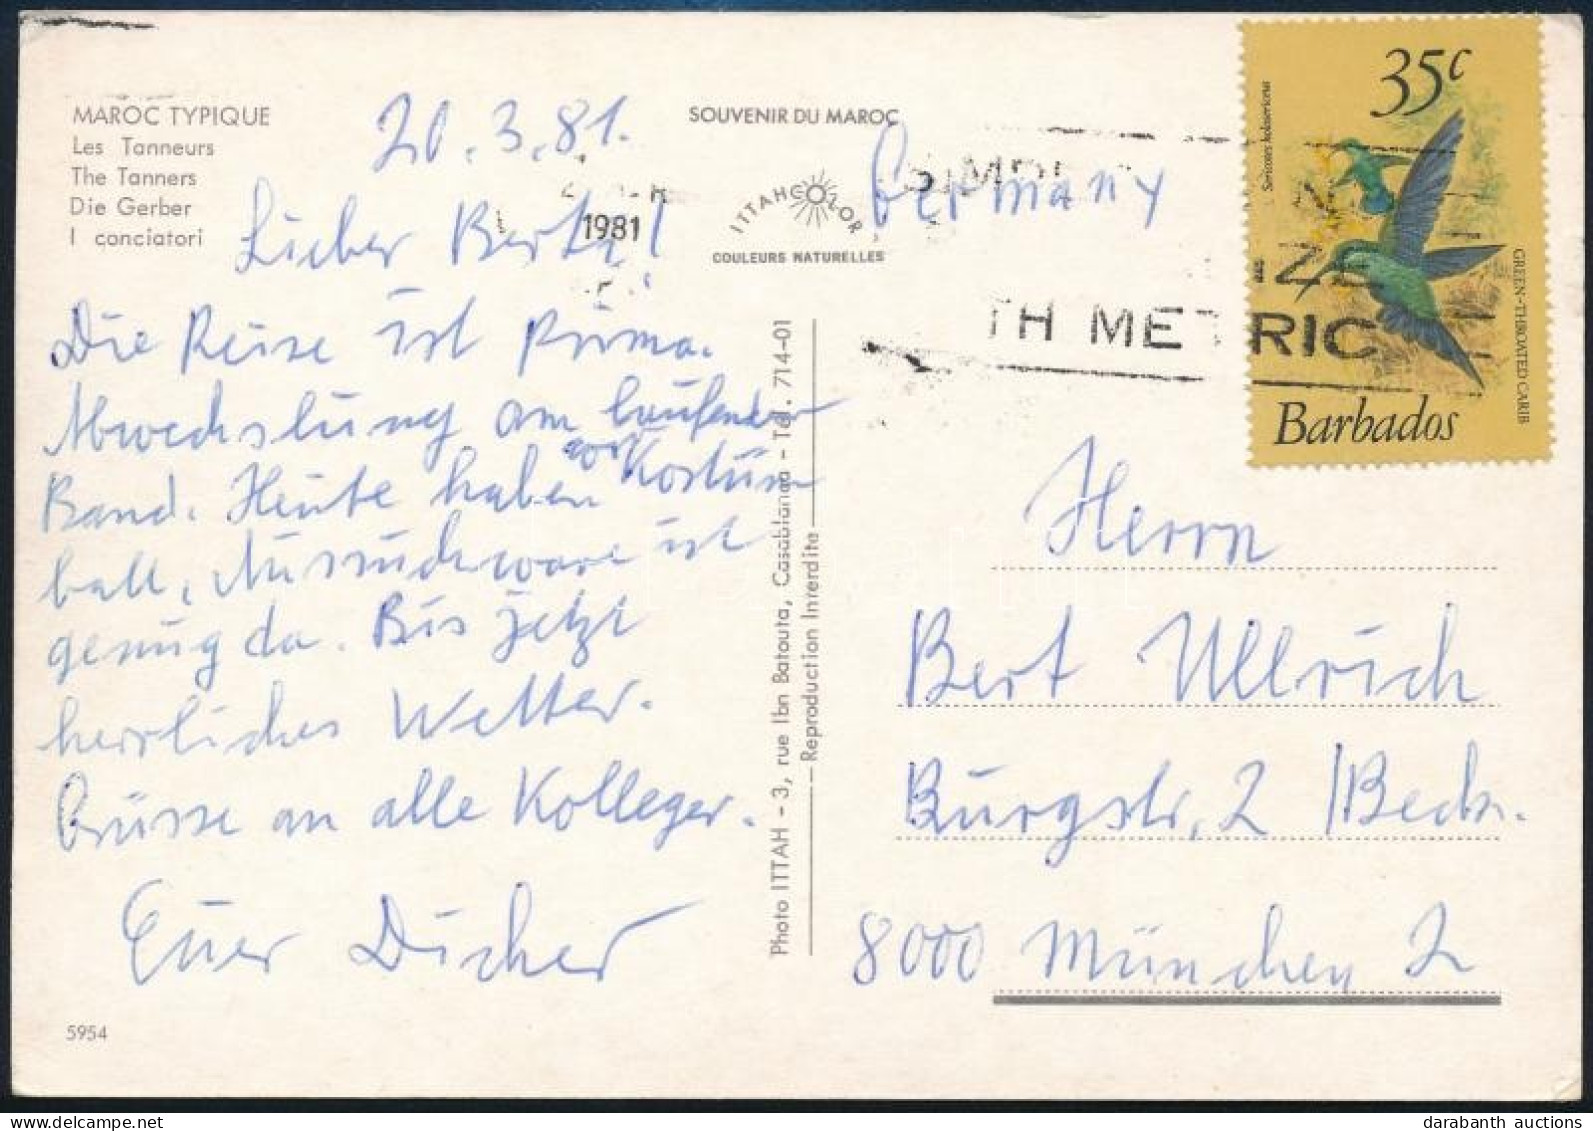 MAROC TYPIQUE
Les Tanneurs
The Tanners
Die Gerber
I conciatori
20.3.81.
Lieber Bert!
Die Reise ist prima.
Abwechslung am laufenden
Band. Heute haben wir Kostüm
ball, Auswahl ist
genug da. Bis jetzt
herrliches Wetter.
Grüsse an alle Kolleger.
Euer Dicher
5954
SOUVENIR DU MAROC
ITTAHCOLOR
COULEURS NATURELLES
1981
Photo ITTAH - 3, rue Ibn Batouta, Casablanca - Tel. 714-01
Reproduction Interdite
Germany
TH METRIC
35c
Sericotes holosericeus
GREEN-THROATED CARIB
Barbados
Herrn
Bert Ullrich
Burgstr. 2 / Beck.
8000 München 2
darabanth auctions